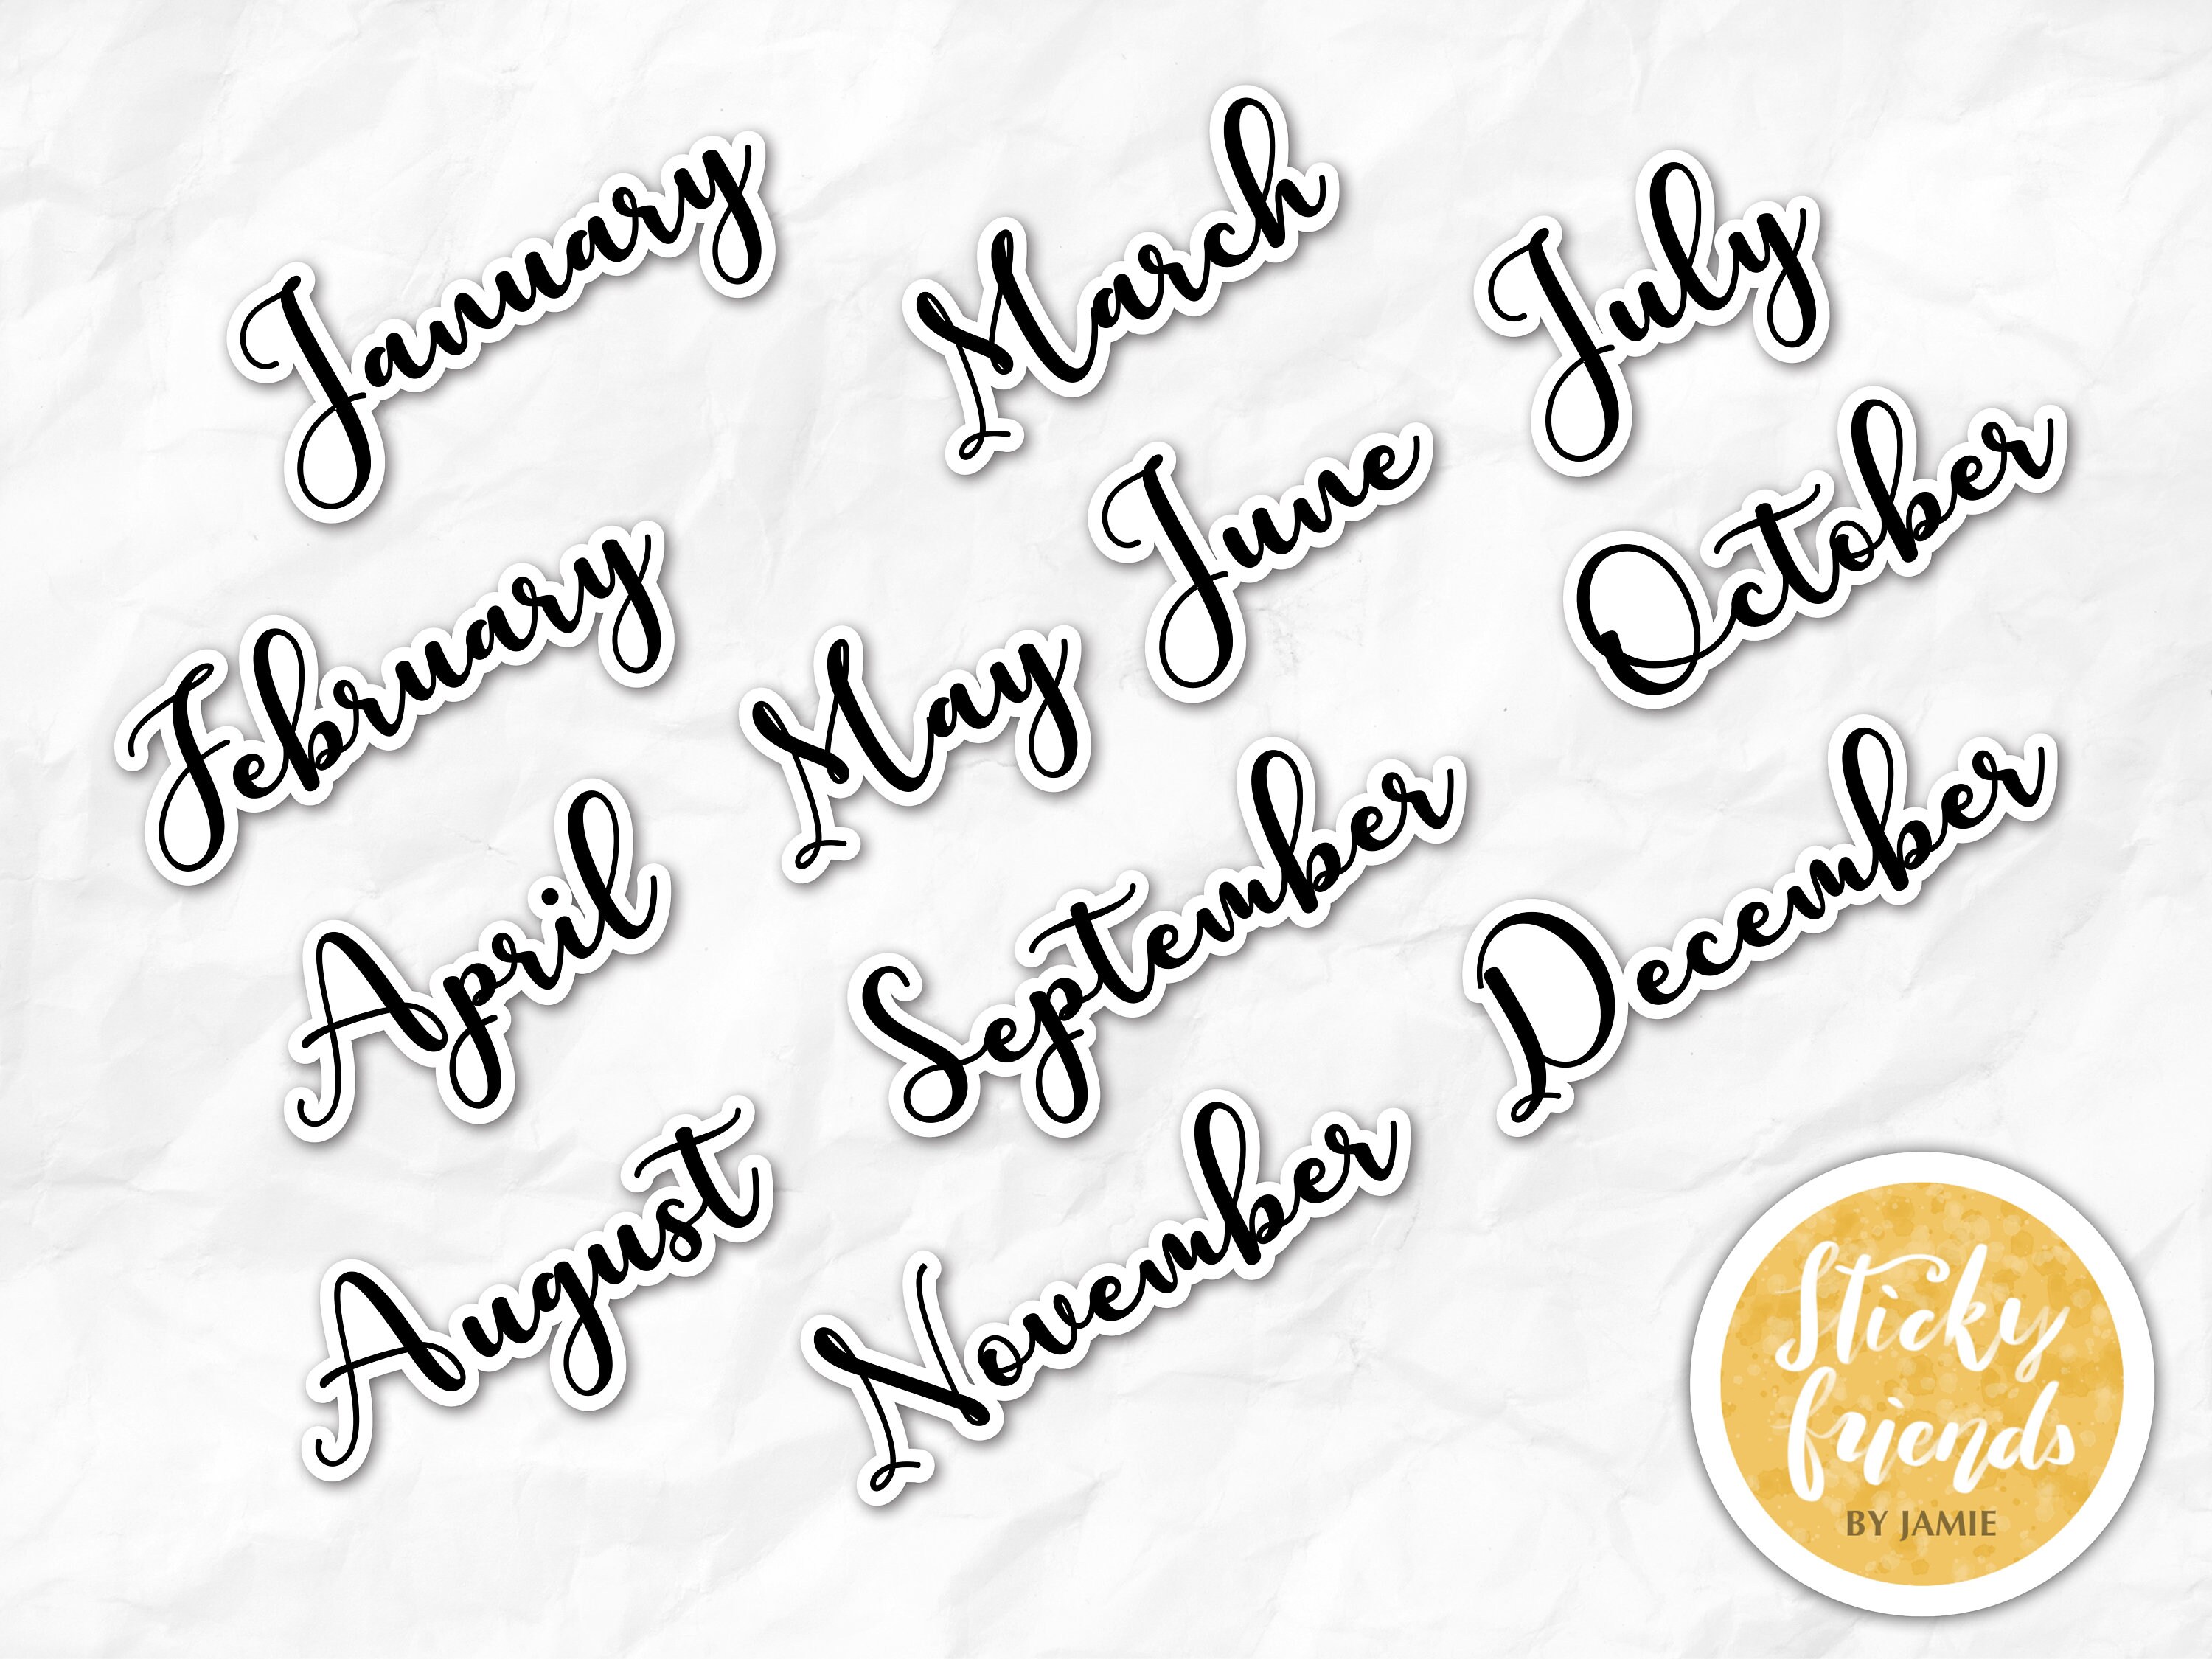 January
February
April
August
March
June
May
September
November
July
October
December
Sticky
friends
BY JAMIE